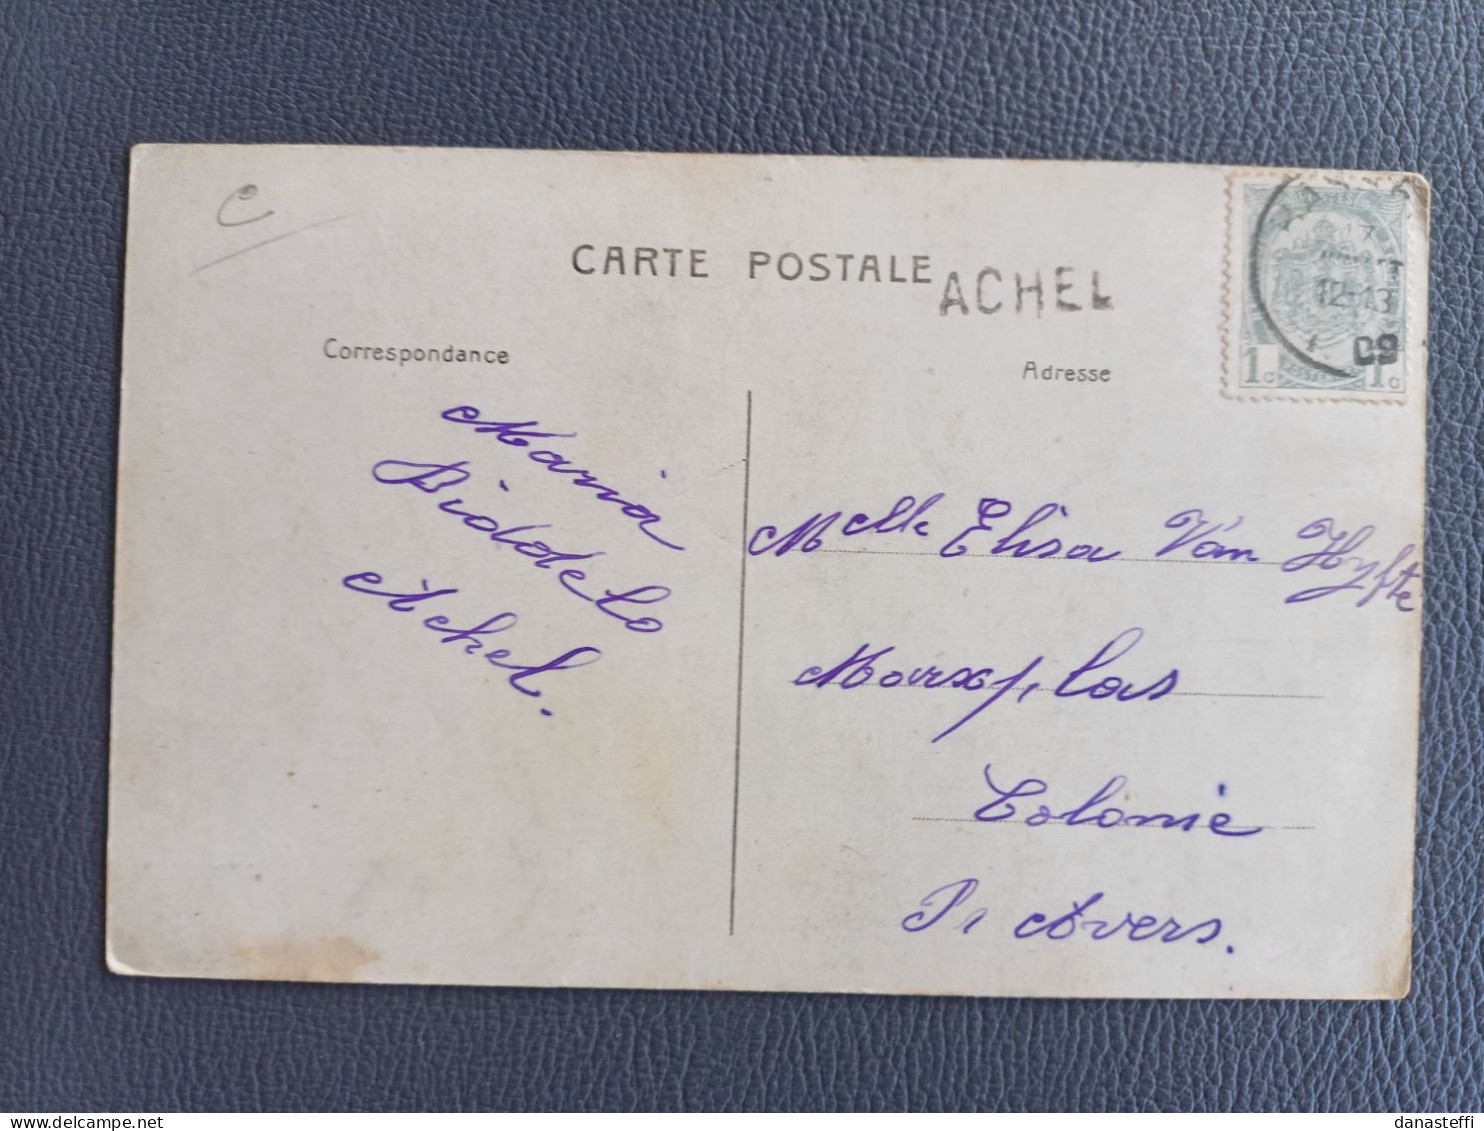 CARTE POSTALE
ACHEL
Correspondance
Adresse
12-13
09
1c 1c
Maria
Biddelo
Achel.
Melle Elisa Van Hyfte
Merxplas
Colonie
Pr Anvers.
delcampe.net
danasteffi